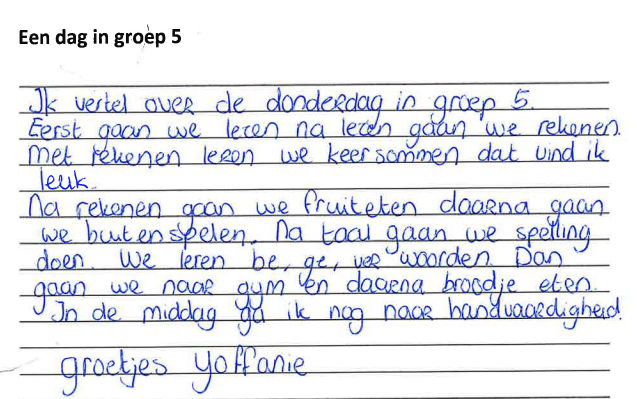 Een dag in groep 5
Ik vertel over de donderdag in groep 5.
Eerst gaan we lezen na lezen gaan we rekenen.
Met rekenen leren we keersommen dat vind ik
leuk.
Na rekenen gaan we fruiteten daarna gaan
we buitenspelen. Na taal gaan we spelling
doen. We leren be, ge, ver woorden. Dan
gaan we naar gym en daarna broodje eten.
In de middag ga ik nog naar handvaardigheid.
groetjes Yoffanie